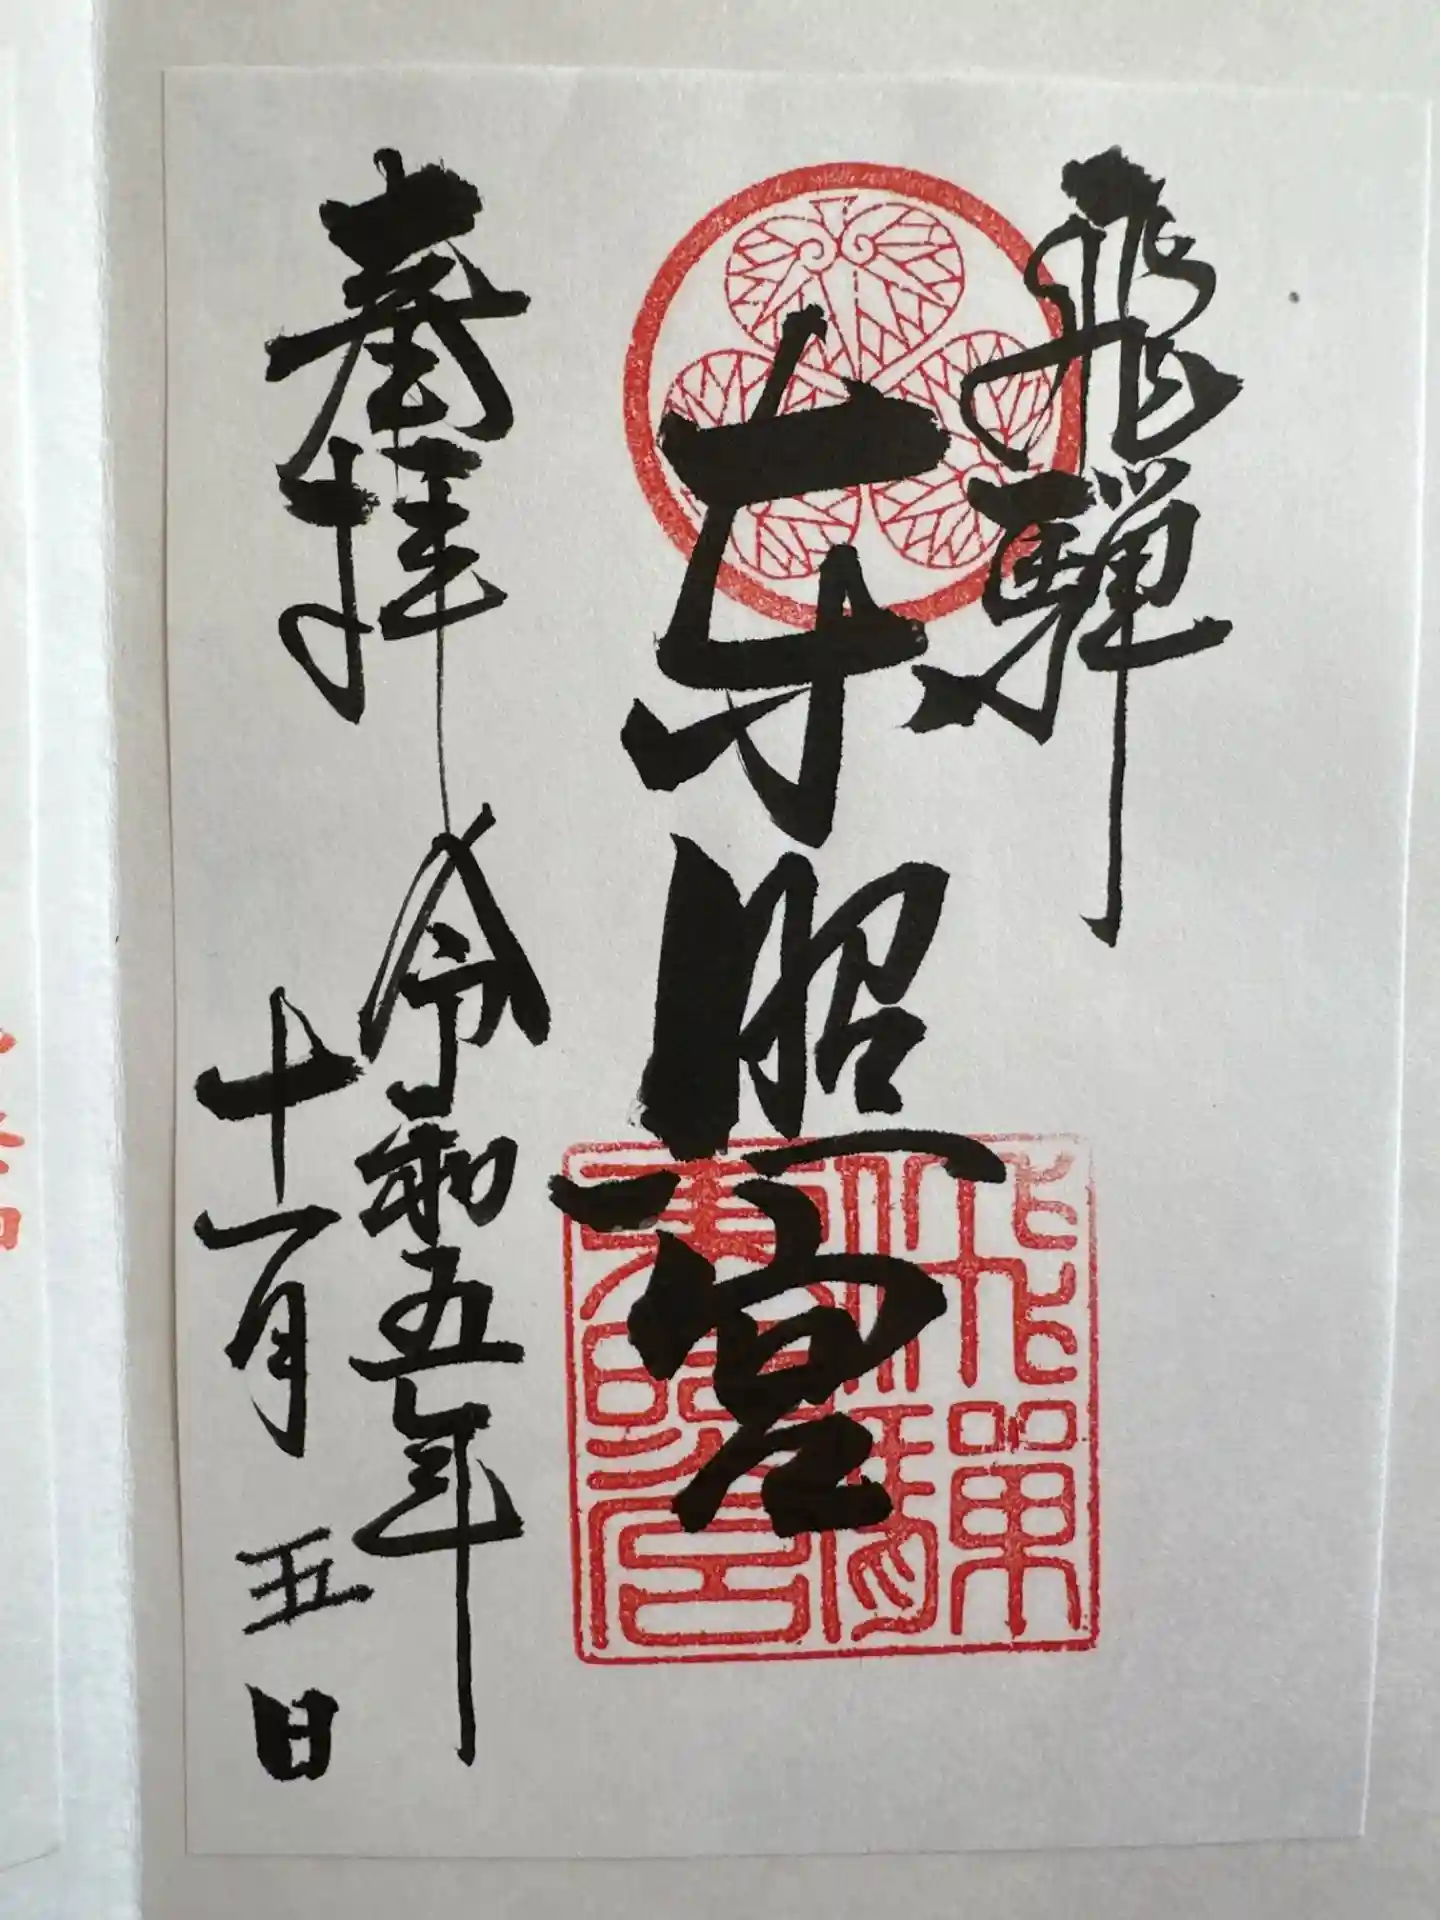 飛騨
東照宮
奉拝
令和五年
十一月五日
飛騨
東照宮